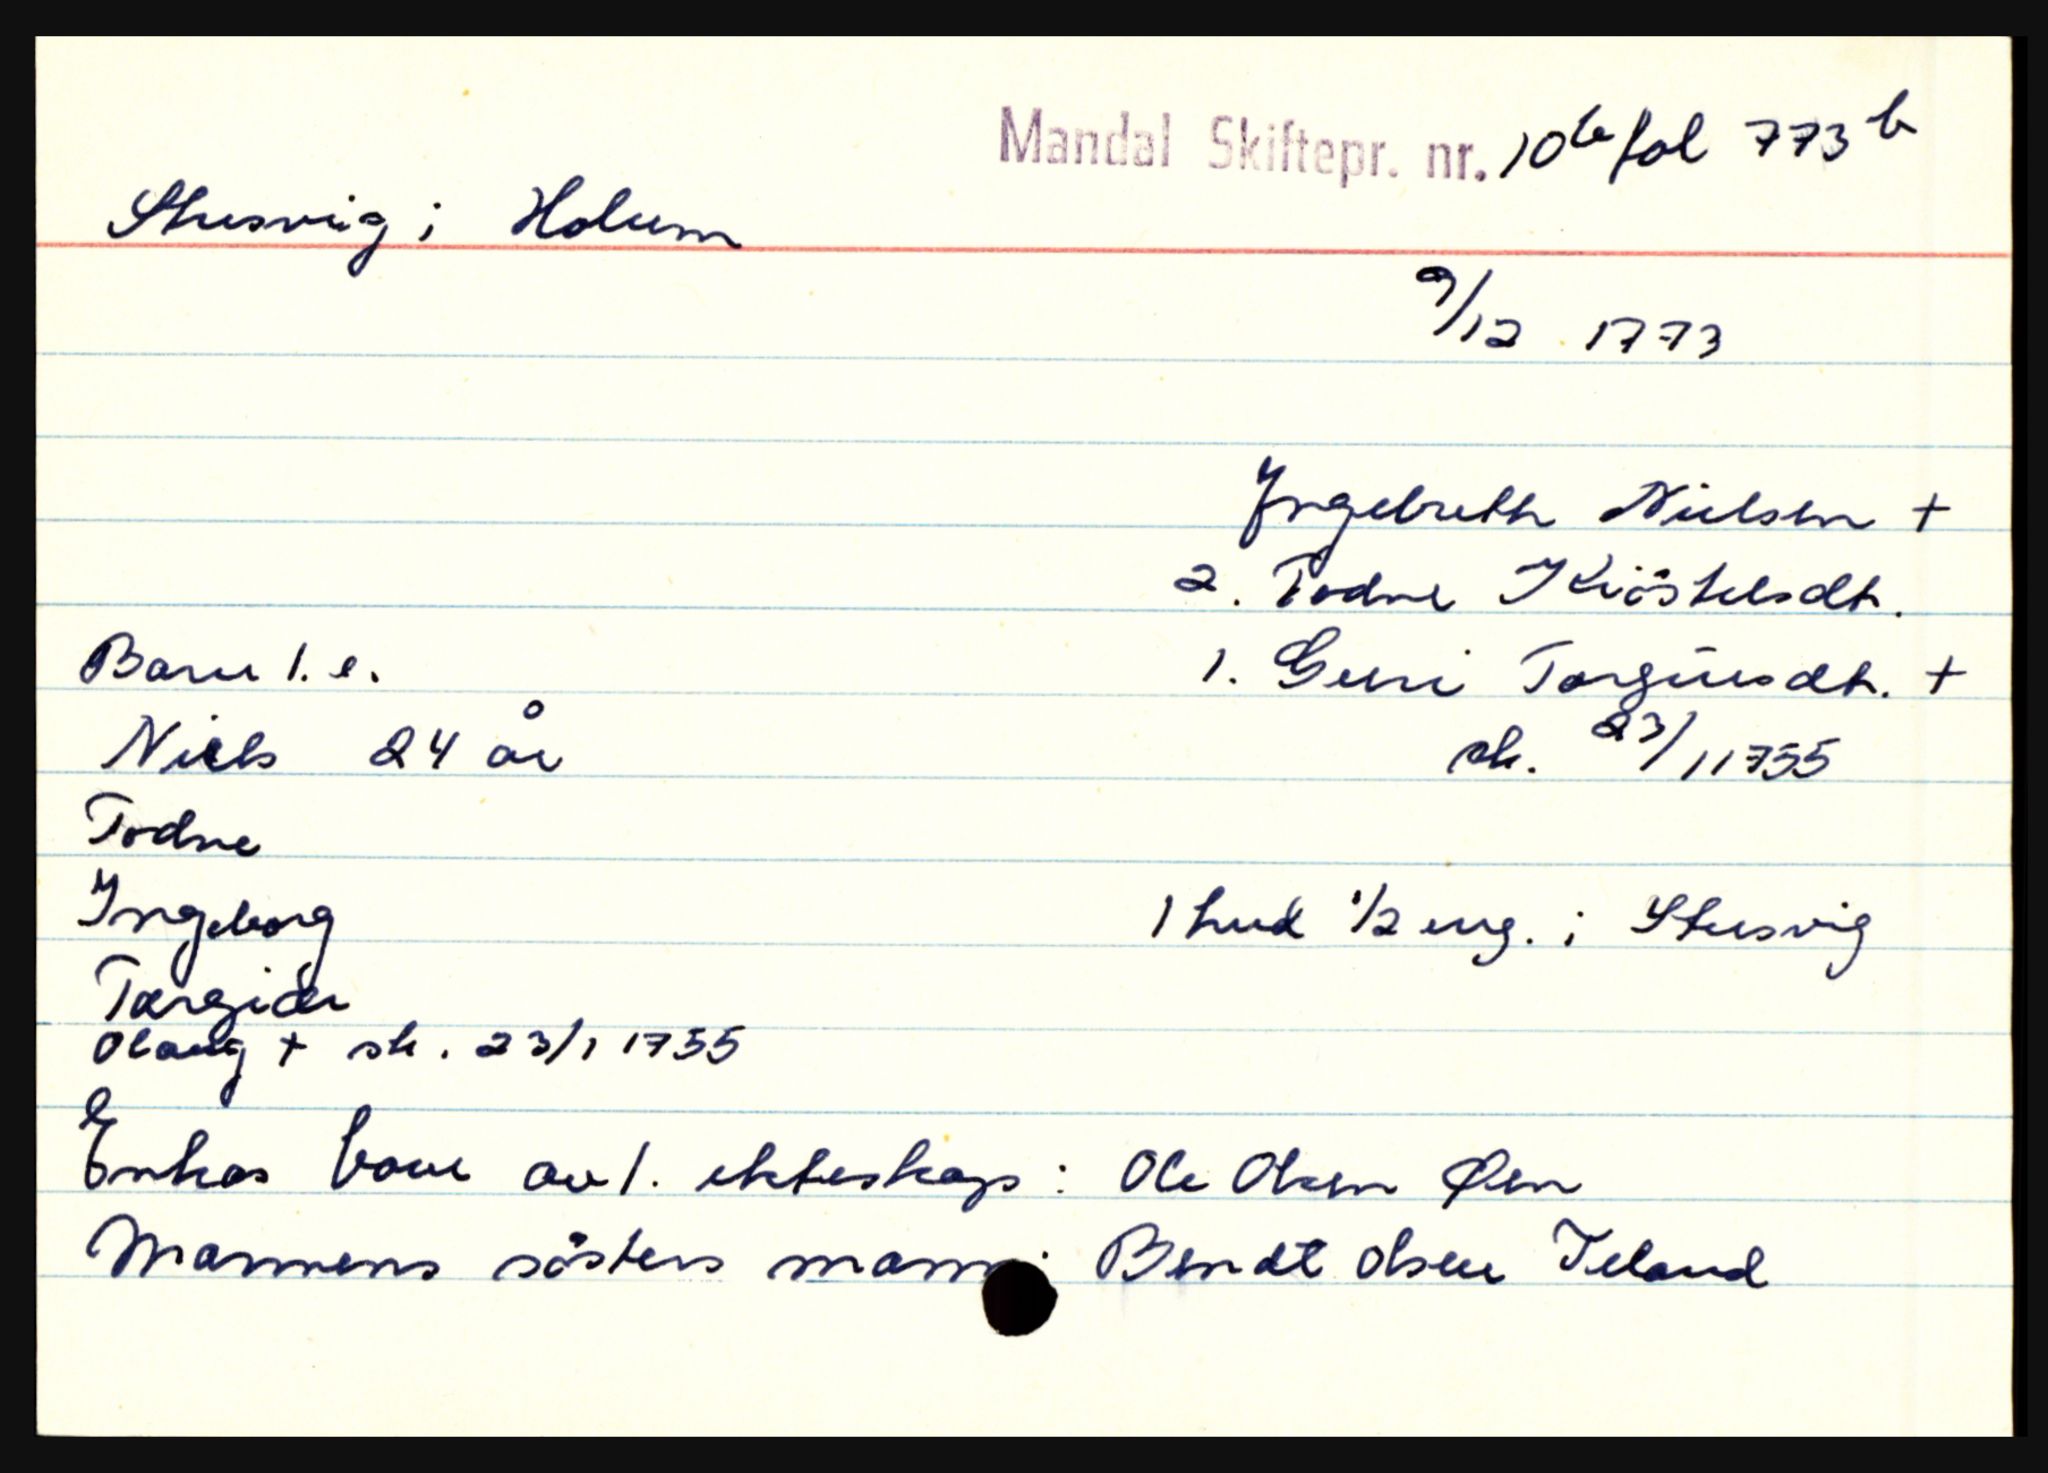 Mandal Skiftepr. nr. 10b fol 773b
Stusvig i Holum
9/12 1773
Ingebreth Nielsen +
2. Todne Kiöstelsdtr.
Barn 1. e.
1. Guri Torgiusdtr. +
Niels 24 år
sk. 23/1 1755
Todne
Ingeborg
1 hud 1/2 eng. i Stusvig
Torgier
Olaug + sk. 23/1 1755
Enkas barn av 1. ekteskap: Ole Olsen Øen
Mannens sösters mann: Bendt Olsen Ieland